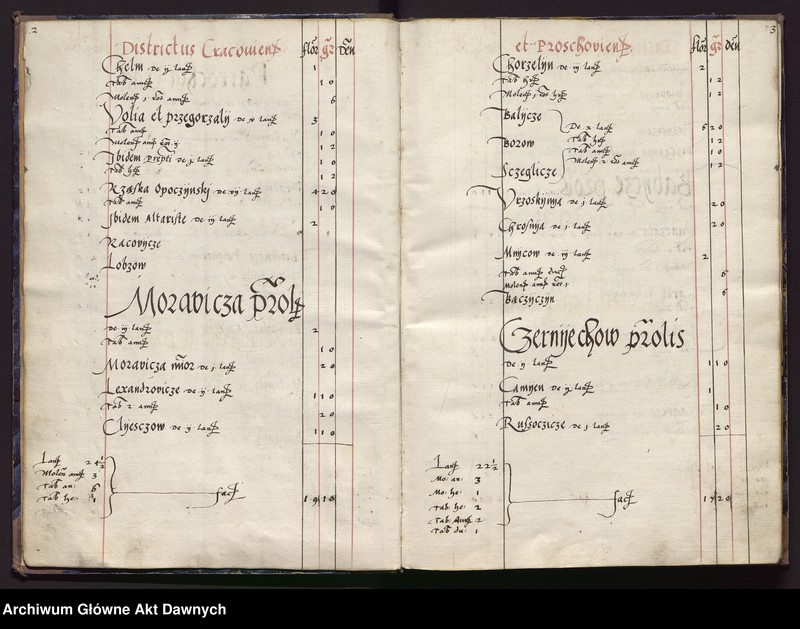 2
Districtus Cracovien
flor gr Den
Chelm de ij lan 1
Tab an 1 0
Molen j rot an 6
Volia et przegorzaly de v lan 3
Tab an 1 0
Molen an rot ij 1 2
Ibidem pre~pti de j lan 1 0
Tab he 1 2
Rzaska Opoczynsky de vij lan 4 2 0
Tab an 1 0
Ibidem Altariste de iij lan 2
Racovycze
Lobzow
Moravicza p~rol
de iij lan 2
Tab an 1 0
Moravicza mi~or de j lan 2 0
Lexandrovicze de ij lan 1 1 0
Tab 2 an 2 0
Clyesczow de ij lan 1 1 0
Lan 2 4 1/2
Molen an 3
Tab an: 6
Tab he: 1
fac 1 9 1 0
3
et Proschovien
flor gr Den
Chorzelyn de iij lan 2
Tab he 1 2
Molen j rot he 1 2
Balycze
De x lan 6 2 0
Tab he 1 2
Borow
Tab an 1 0
Molen 2 rot an 1 2
Sczeglicze
Vrzoskynya de j lan 2 0
Chrosnya de j lan 2 0
Mnycow de iij lan 2
Tab an 6
Molen an rot j 6
Baczynczyn
Czernyechow p~rolis
De ij lan 1 1 0
Camyen de ij lan 1
Tab an 1 0
Russoczicze de j lan 2 0
Lan 2 2 1/2
Mo: an: 3
Mo: he: 1
Tab: he: 2
Tab: An 2
Tab du: 1
fac 1 7 2 0
Archiwum Główne Akt Dawnych